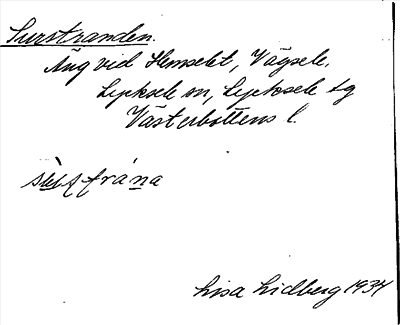 Surstranden.
Äng vid Hemselet, Vägsele,
Lycksele sn, Lycksele tg
Västerbottens l.
Lisa Lidberg 1934